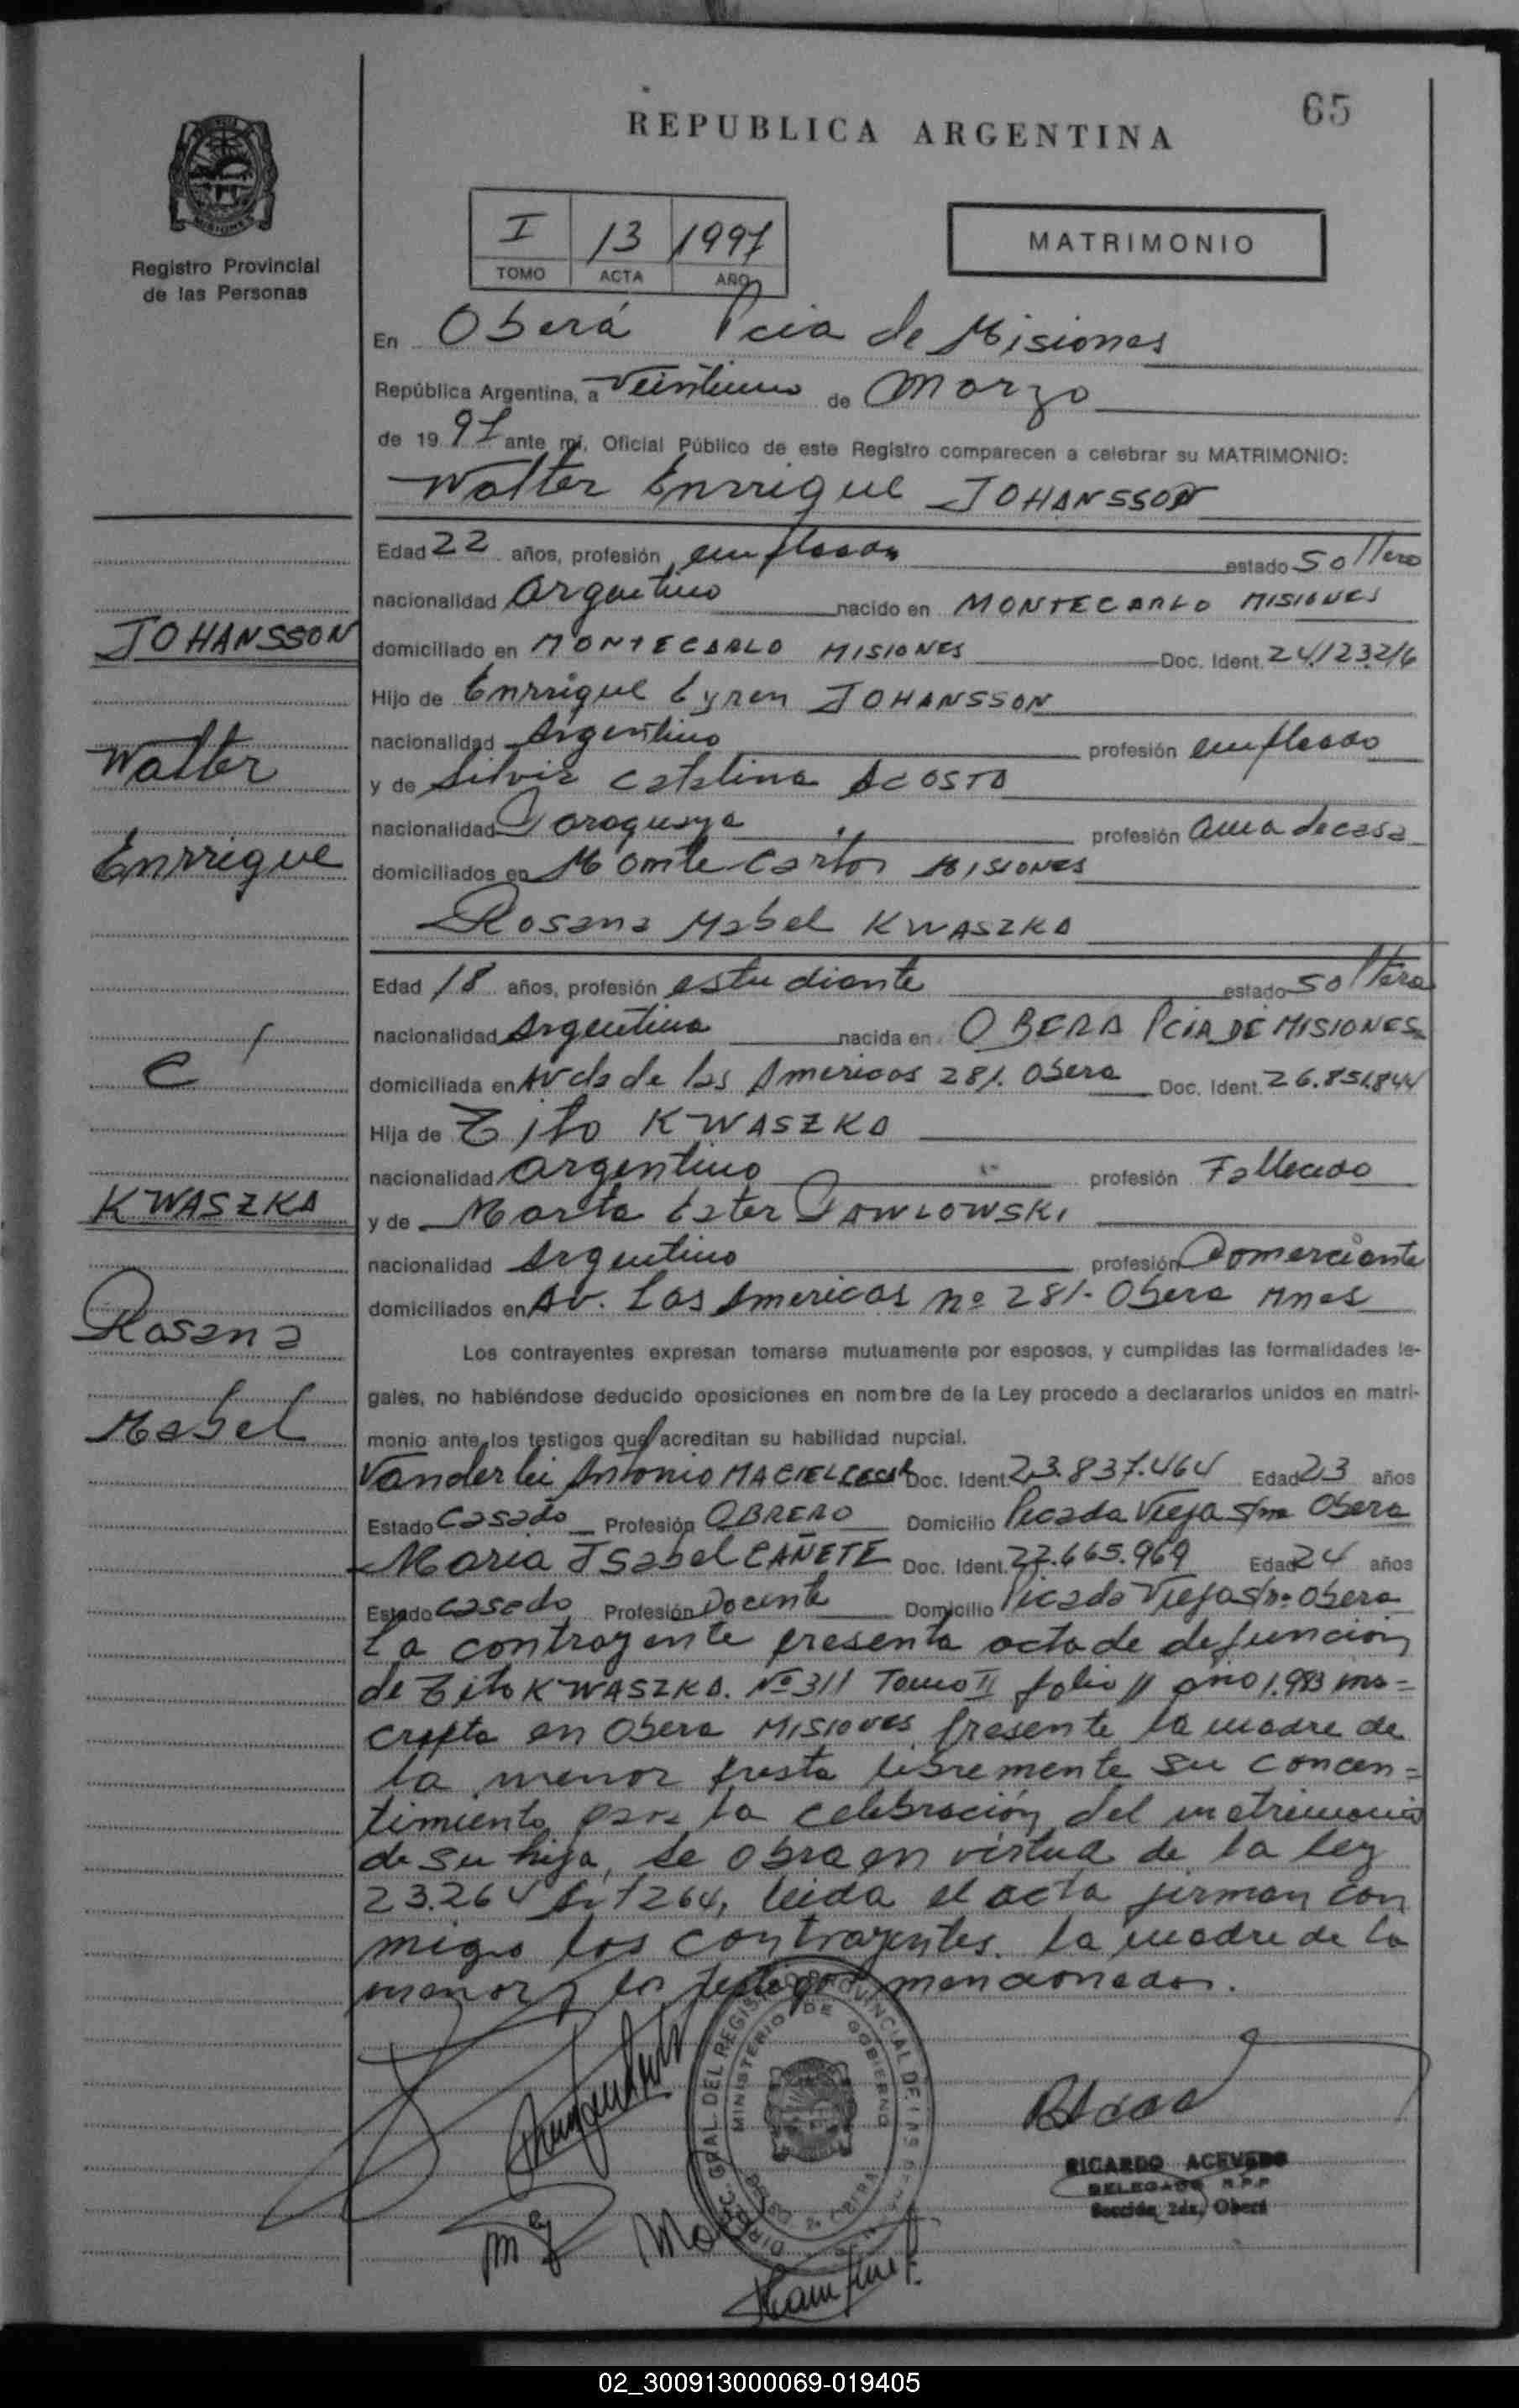 65
REPUBLICA ARGENTINA
I 13 1997
TOMO ACTA AÑO
MATRIMONIO
Registro Provincial
de las Personas
En Oberá Pcia de Misiones
República Argentina, a Veintiuno de Marzo
de 1997 ante mí, Oficial Público de este Registro comparecen a celebrar su MATRIMONIO:
Walter Enrrique JOHANSSON
Edad 22 años, profesión empleado estado Soltero
nacionalidad Argentino nacido en MONTECARLO MISIONES
domiciliado en MONTECARLO MISIONES Doc. Ident. 24.123.216
Hijo de Enrrique Eyren JOHANSSON
nacionalidad Argentino profesión empleado
y de Silvia Catalina ACOSTA
nacionalidad Paraguaya profesión ama de casa
domiciliados en Monte Carlos MISIONES
Rosana Mabel KWASZKA
Edad 18 años, profesión estudiante estado Soltera
nacionalidad Argentina nacida en OBERA PCIA DE MISIONES
domiciliada en Avda de las Americas 281. Obera Doc. Ident. 26.851.844
Hija de Tito KWASZKA
nacionalidad argentino profesión Fallecido
y de Marta Ester PAWLOWSKI
nacionalidad Argentino profesión Comerciante
domiciliados en Av. Las Americas nº 281- Obera Mnes
JOHANSSON
Walter
Enrrique
c/
KWASZKA
Rosana
Mabel
Los contrayentes expresan tomarse mutuamente por esposos, y cumplidas las formalidades le-
gales, no habiéndose deducido oposiciones en nombre de la Ley procedo a declararlos unidos en matri-
monio ante los testigos que acreditan su habilidad nupcial.
Vanderlei Antonio MACIEL Doc. Ident. 23.837.464 Edad 23 años
Estado Casado Profesión OBRERO Domicilio Picada Vieja Obera
Maria Isabel CAÑETE Doc. Ident. 22.665.969 Edad 24 años
Estado casado Profesión Docente Domicilio Picada Vieja Obera
La contrayente presenta acta de defuncion
de Tito KWASZKA. Nº 311 Tomo II folio 11 año 1.983 ins=
cripta en Obera MISIONES presente la madre de
la menor presta libremente su concen=
timiento para la celebración del matrimonio
de su hija, se obra en virtud de la ley
23.264 Art 264, leida el acta firman con
migo los contrayentes. la madre de la
menor y los testigos mencionados.
DIREC. GRAL. DEL REGISTRO PROVINCIAL DE LAS
MINISTERIO DE GOBIERNO
RICARDO ACEVEDO
DELEGADO R.P.P
Sección 2da, Oberá
02_300913000069-019405